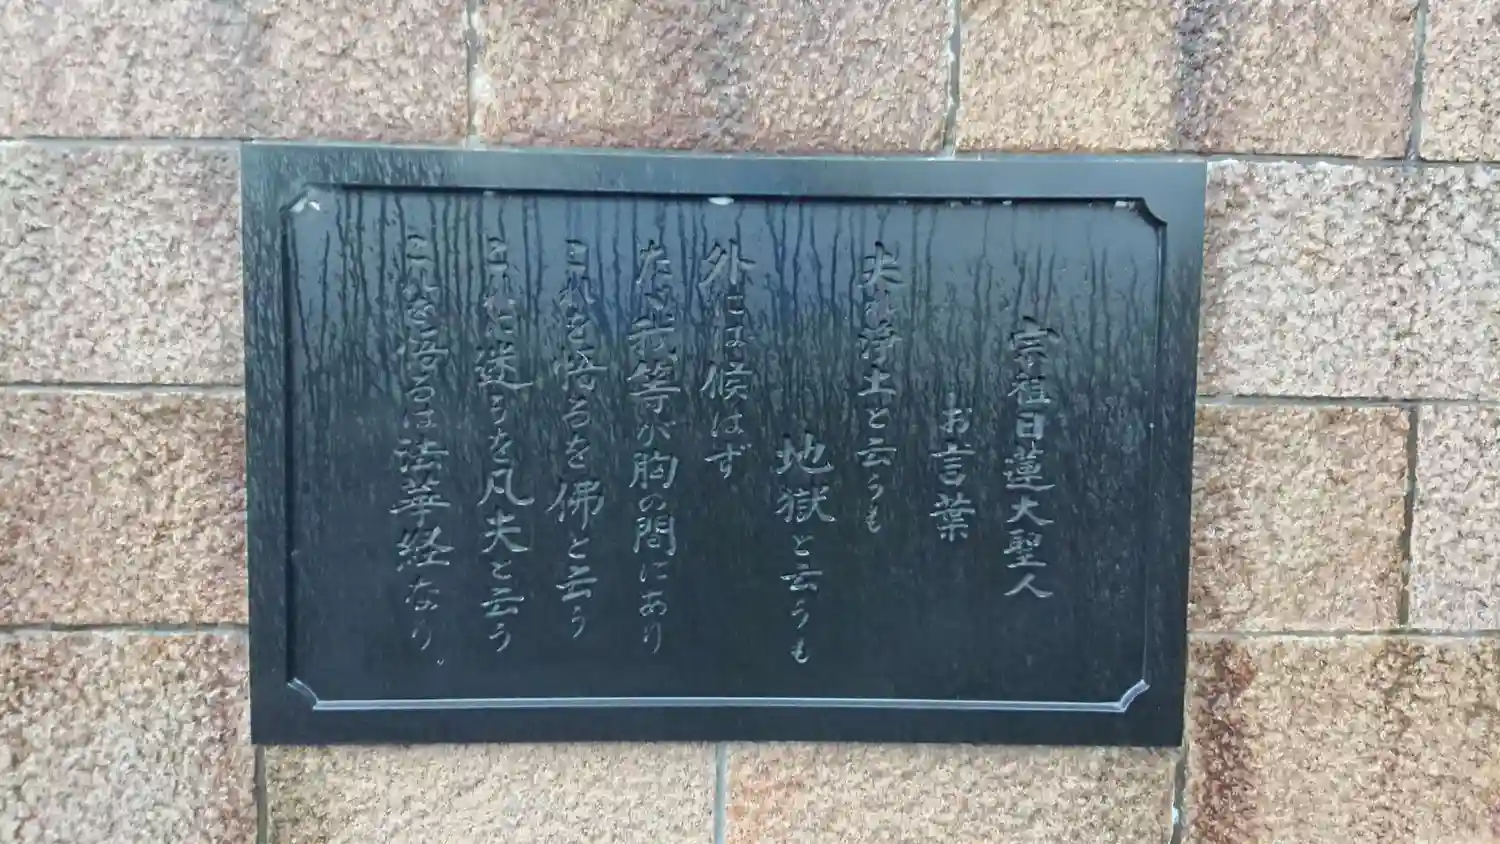 宗祖日蓮大聖人
お言葉
夫れ浄土と云うも
地獄と云うも
外には候はず
たゞ我等が胸の間にあり
これを悟るを佛と云う
これに迷うを凡夫と云う
これを悟るは法華経なり。